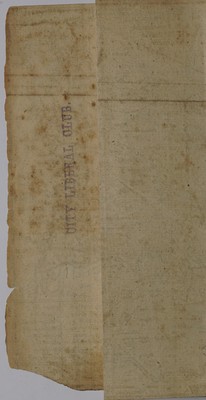 CITY LIBERAL CLUB.